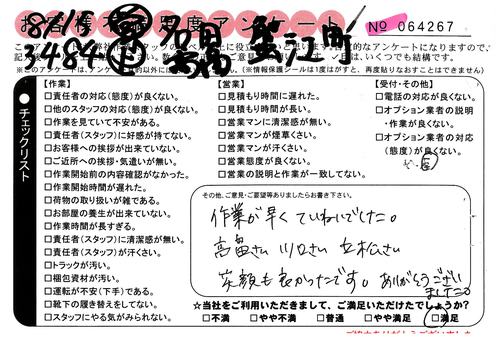 お客様満足度アンケート
№ 064267
8/18
3484
蟹江町
※このアンケートは、アンケート目的以外に
(※情報保護シールは1度はがすと、再度貼りなおすことはできません)
●チェックリスト
【作業】
□責任者の対応(態度)が良くない。
□他のスタッフの対応(態度)が良くない。
□作業を見ていて不安がある。
□責任者(スタッフ)に好感が持てない。
□お客様への挨拶が出来ていない。
□ご近所への挨拶・気遣いが無い。
□作業開始前の内容確認がなかった。
□作業開始時間が遅れた。
□荷物の取り扱いが雑である。
□お部屋の養生が出来ていない。
□作業時間が長すぎる。
□責任者(スタッフ)に清潔感が無い。
□責任者(スタッフ)が汗くさい。
□トラックが汚い。
□梱包資材が汚い。
□運転が不安(下手)である。
□靴下の履き替えをしてない。
□スタッフにやる気がみられない。
【営業】
□見積もり時間に遅れた。
□見積もり時間が長い。
□営業マンに清潔感が無い。
□営業マンが煙草くさい。
□営業マンが汗くさい。
□営業態度が良くない。
□営業の説明と作業が一致してない。
【受付・その他】
□電話の対応が良くない。
□オプション業者の説明
・作業が良くない。
□オプション業者の対応
(態度)が良くない。
その他、ご意見・ご要望等ありましたらお書き下さい。
作業が早くていねいでした。
高畠さん 川口さん 立松さん
笑顔も良かったです。ありがとうござい
ました。
☆当社をご利用いただきまして、ご満足いただけたでしょうか?
□不満 □やや不満 □普通 □やや満足 □満足